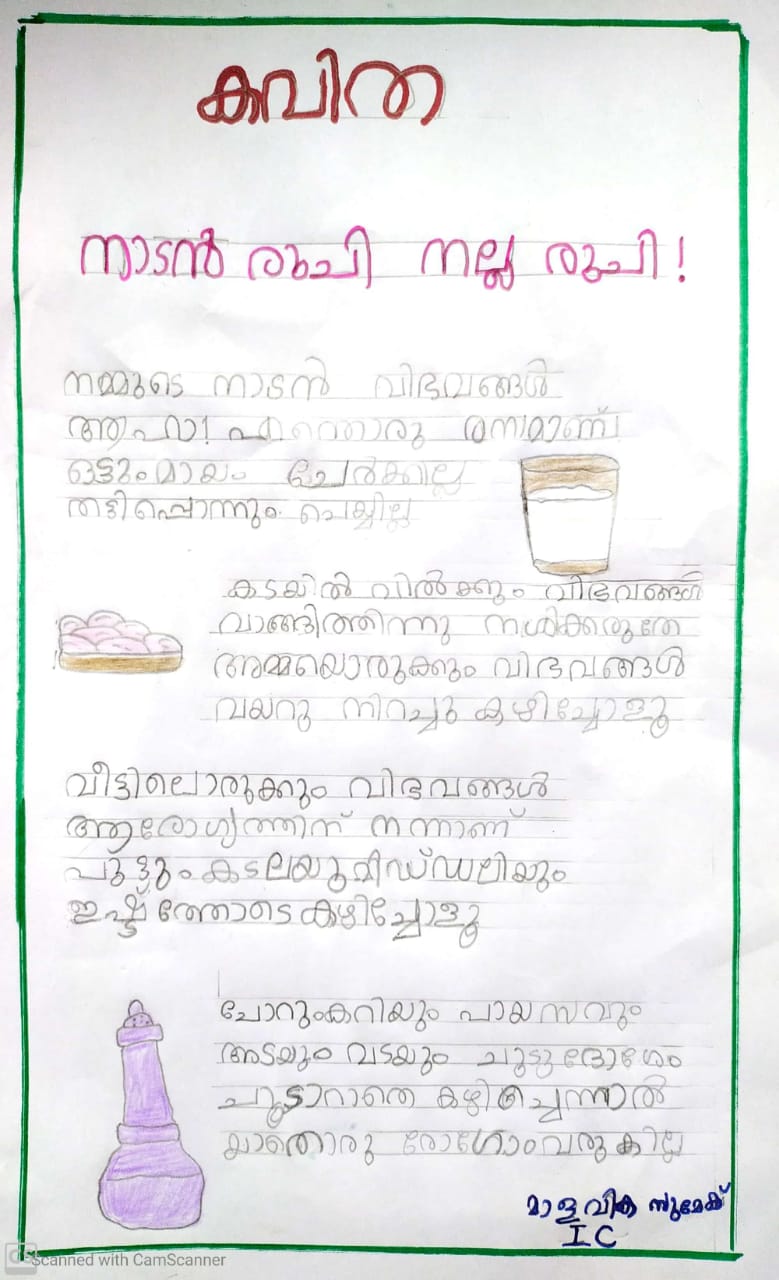 കവിത
നാടൻ രുചി നല്ല രുചി!
നമ്മുടെ നാടൻ വിഭവങ്ങൾ
ആഹാ! എന്തൊരു രസമാണ്
ഒട്ടും മായം ചേർക്കില്ല
തട്ടിപ്പൊന്നും ചെയ്യില്ല
കടയിൽ വിൽക്കും വിഭവങ്ങൾ
വാങ്ങിത്തിന്നു നശിക്കരുതേ
അമ്മയൊരുക്കും വിഭവങ്ങൾ
വയറു നിറച്ചു കഴിച്ചോളൂ
വീട്ടിലൊരുക്കും വിഭവങ്ങൾ
ആരോഗ്യത്തിന് നന്നാണ്
പുട്ടും കടലയുമിഡ്ഡലിയും
ഇഷ്ട്ടത്തോടെ കഴിച്ചോളൂ
ചോറും കറിയും പായസവും
അടയും വടയും ചുടുദോശേം
ചൂടാറാതെ കഴിച്ചെന്നാൽ
യാതൊരു രോഗോംവരുകില്ല
മാളവിക സുമേക്
I C
Scanned with CamScanner